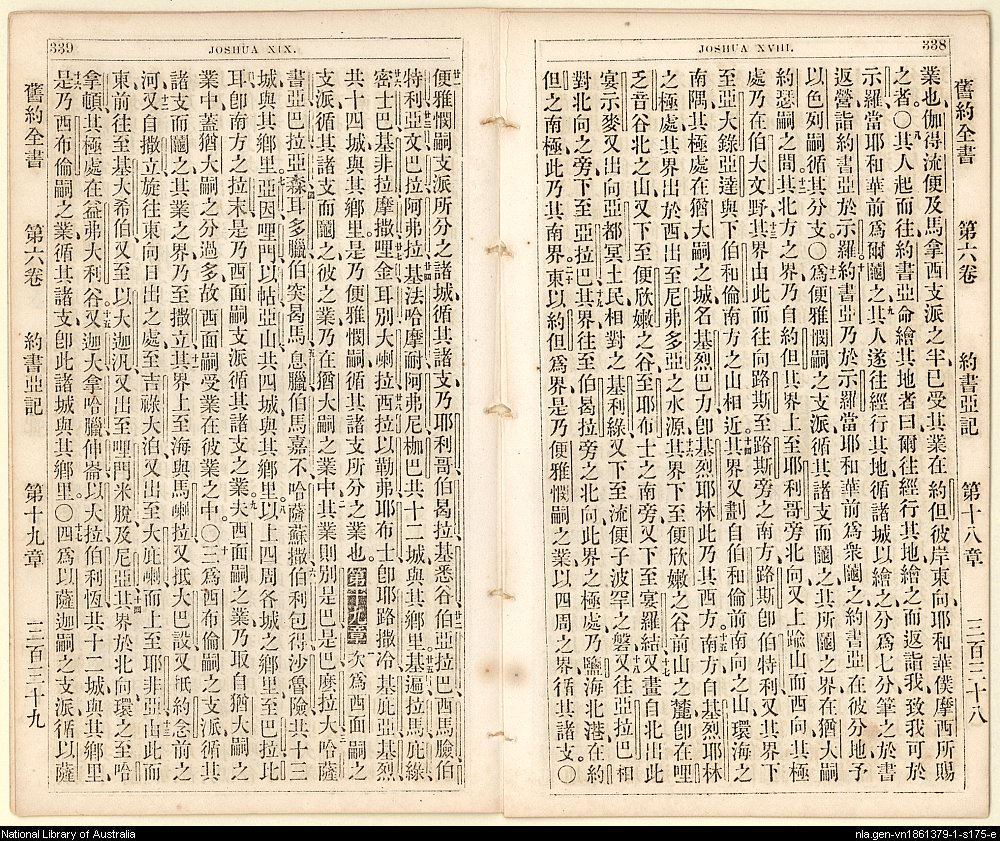 338
JOSHUA XVIII.
舊約全書 第六卷 約書亞記 第十八章 三百三十八
業也、伽得流便及馬拿西支派之半、已受其業在約但彼岸東向、耶和華僕摩西所賜
之者。〇八其人起而往、約書亞命繪其地者曰、爾往經行其地、繪之而返詣我、致我可於
示羅當耶和華前、爲爾鬮之、九其人遂往、經行其地、循諸城以繪之、分爲七分、筆之於書、
返營詣約書亞於示羅、十約書亞乃於示羅當耶和華前、爲衆鬮之、約書亞在彼分地予
以色列嗣、循其分支。〇十一爲便雅憫嗣之支派、循其諸支而鬮之、其所鬮之界、在猶大嗣
約瑟嗣之間、十二其北方之界、乃自約但、其界上至耶利哥旁北向、又上踰山而西向、其極
處乃在伯大文野、十三其界由此而往向路斯、至路斯旁之南方、路斯卽伯特利、又其界下
至亞大錄亞達、與下伯和倫南方之山相近、十四其界又劃自伯和倫前南向之山、環海之
南隅、其極處在猶大嗣之城、名基烈巴力、卽基烈耶林、此乃其西方、十五南方自基烈耶林
之極處、其界出於西、出至尼弗多亞之水源、十六其界下至便欣嫩之谷前山之麓、卽在哩
乏音谷北之山、又下至便欣嫩之谷、至耶布士之南旁、又下至宴羅結、十七又畫自北、出此
宴示麥、又出向亞都冥土民相對之基利綠、又下至流便子波罕之磐、十八又往亞拉巴相
對北向之旁、下至亞拉巴、十九其界往至伯曷拉旁之北向、此界之極處、乃鹽海北港、在約
但之南極、此乃其南界、二十東以約但爲界、是乃便雅憫嗣之業、以四周之界、循其諸支。〇
339
JOSHUA XIX.
便雅憫嗣支派所分之諸城、循其諸支、乃耶利哥、伯曷拉、基悉谷、伯亞拉巴、西馬臉、伯
特利、亞文、巴拉、阿弗拉、基法哈摩耐、阿弗尼、枷巴、共十二城、與其鄉里、基遍、拉馬、庇綠、
密士巴、基非拉、摩撒、哩金、耳別、大喇拉、西拉、以勒弗、耶布士、卽耶路撒冷、基庇亞、基烈、
共十四城、與其鄉里、是乃便雅憫嗣循其諸支所分之業也。第十九章一次爲西面嗣之
支派、循其諸支而鬮之、彼之業、乃在猶大嗣之業中、二其業則別是巴、是巴、麼拉大、哈薩
書亞、巴拉、亞森、耳多臘、伯突、曷馬、息臘、伯馬嘉不、哈薩蘇撒、伯利包得、沙魯險、共十三
城、與其鄉里、亞因、哩門、以帖、亞山、共四城、與其鄉里、以上四周各城之鄉里、至巴拉比
耳、卽南方之拉末、是乃西面嗣支派、循其諸支之業、夫西面嗣之業、乃取自猶大嗣之
業中、蓋猶大嗣之分過多、故西面嗣受業在彼業之中。〇十三爲西布倫嗣之支派、循其
諸支而鬮之、其業之界、乃至撒立、其界上至海與馬喇拉、又抵大巴設、又抵約念前之
河、又自撒立旋往東向日出之處、至吉祿大泊、又出至大庇喇、而上至耶非亞、由此而
東、前往至基大希伯、又至以大迦汎、又出至哩門米脫及尼亞、其界於北向環之、至哈
拿頓、其極處在益弗大利谷、十五又迦大、拿哈臘、伸崙、以大拉、伯利恆、共十二城、與其鄉里、
是乃西布倫嗣之業、循其諸支、卽此諸城、與其鄉里。〇十七四爲以薩迦嗣之支派、循以薩
舊約全書 第六卷 約書亞記 第十九章 三百三十九
National Library of Australia
nla.gen-vn1861379-1-s175-e